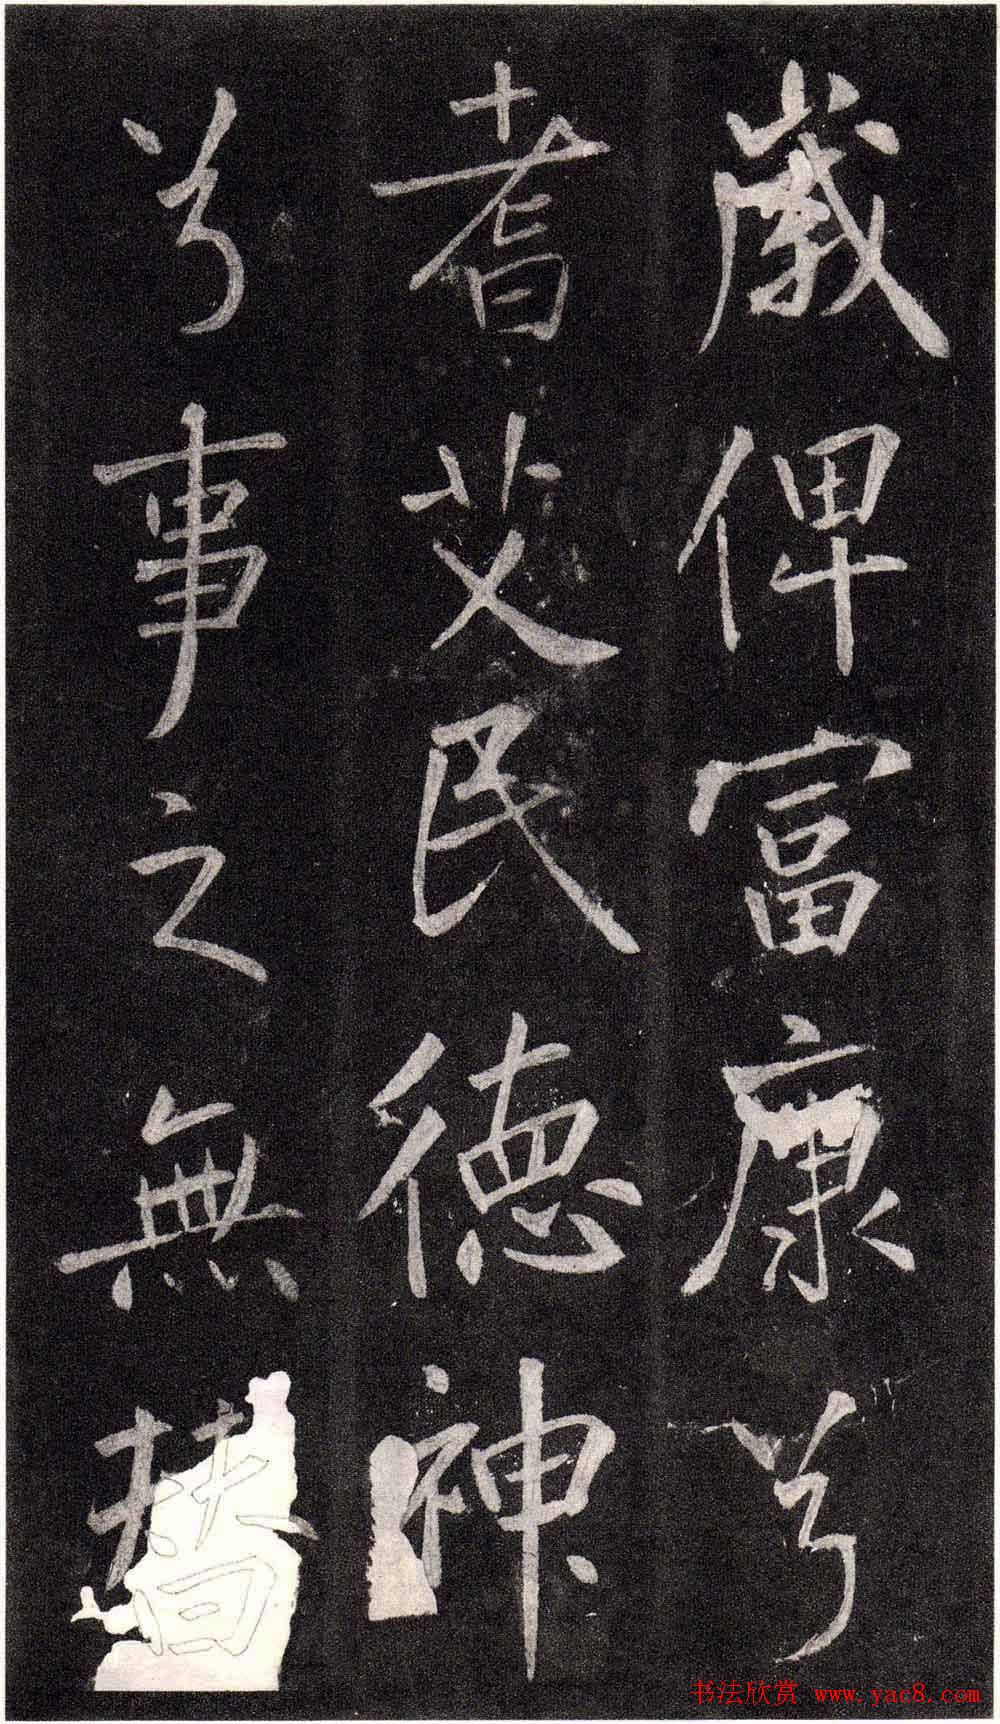 歲俾富康兮
耆艾民德神
兮事之無替
书法欣赏 www.yac8.com